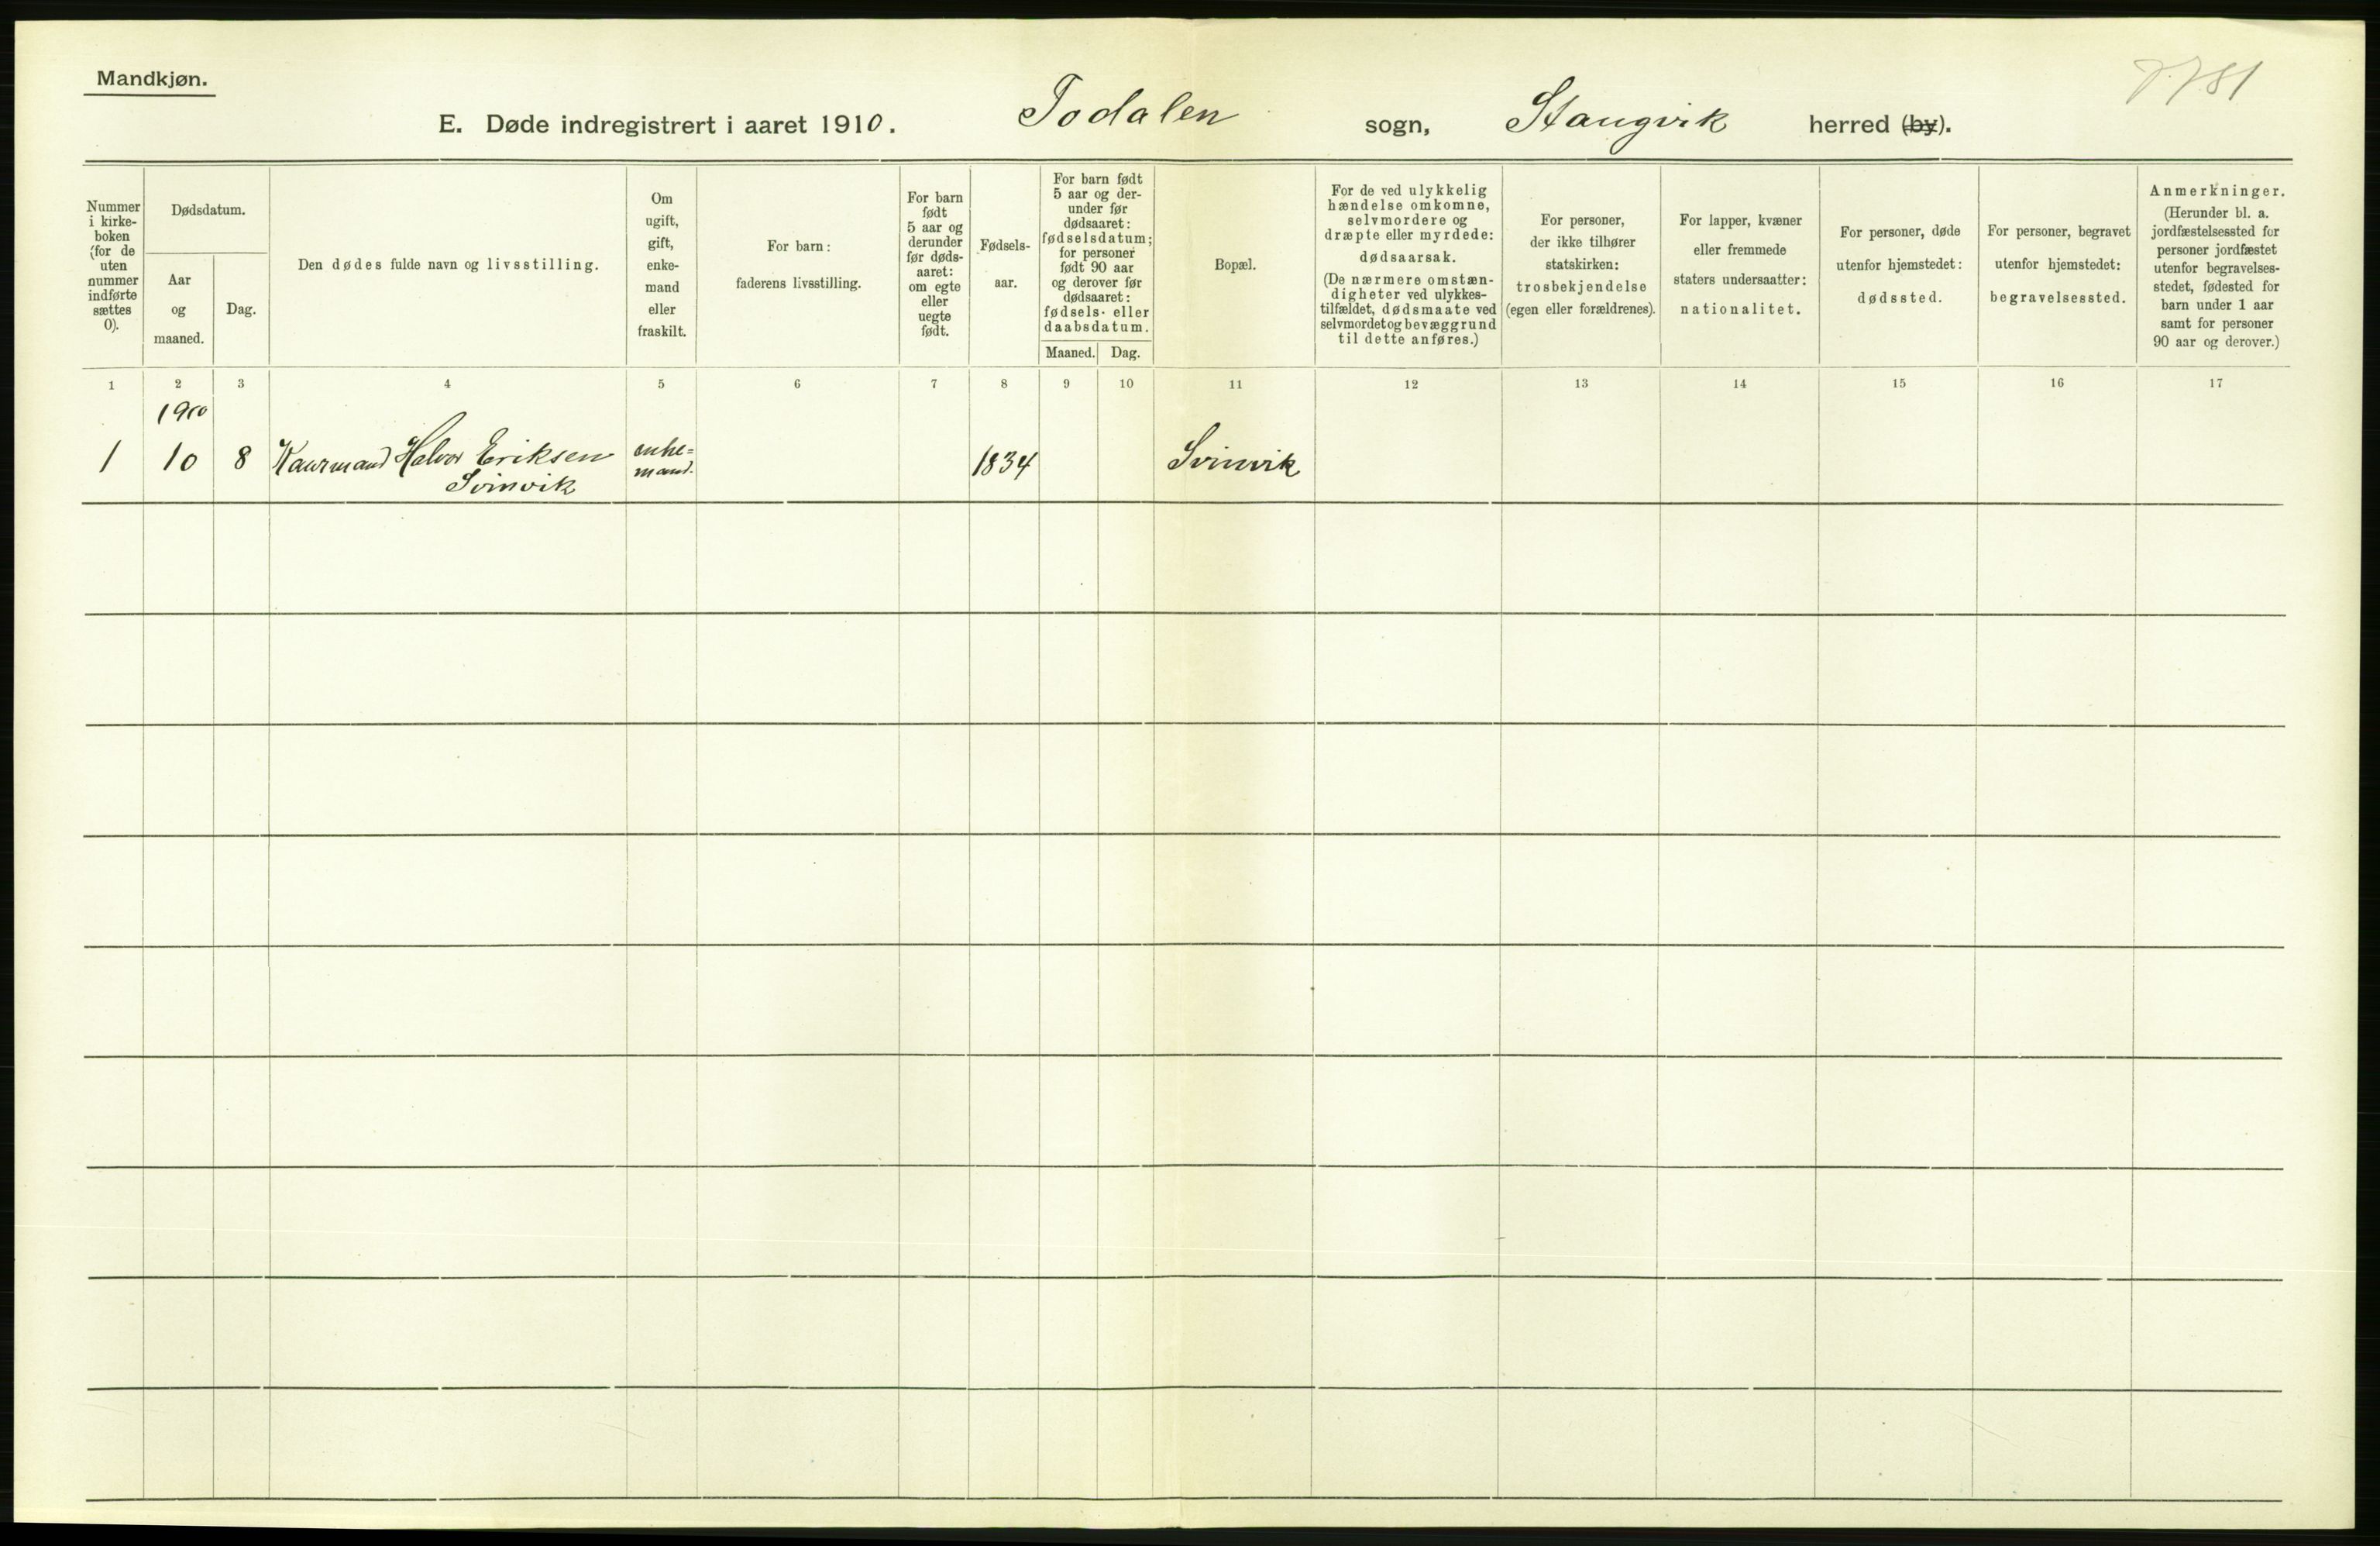 Mandkjøn.
7781
E. Døde indregistrert i aaret 1910. Todalen sogn, Stangvik herred (by).
Nummer i kirke-boken (for de uten nummer indførte sættes 0).
Dødsdatum.
Aar og maaned.
Dag.
Den dødes fulde navn og livsstilling.
Om ugift, gift, enke-mand eller fraskilt.
For barn: faderens livsstilling.
For barn født 5 aar og derunder før døds-aaret: om egte eller uegte født.
Fødsels-aar.
For barn født 5 aar og der-under før dødsaaret: fødselsdatum; for personer født 90 aar og derover før dødsaaret: fødsels- eller daabsdatum.
Maaned. Dag.
Bopæl.
For de ved ulykkelig hændelse omkomne, selvmordere og dræpte eller myrdede: dødsaarsak. (De nærmere omstæn-digheter ved ulykkes-tilfældet, dødsmaate ved selvmordet og bevæggrund til dette anføres.)
For personer, der ikke tilhører statskirken: trosbekjendelse (egen eller forældrenes).
For lapper, kvæner eller fremmede staters undersaatter: nationalitet.
For personer, døde utenfor hjemstedet: dødssted.
For personer, begravet utenfor hjemstedet: begravelsessted.
Anmerkninger. (Herunder bl. a. jordfæstelsessted for personer jordfæstet utenfor begravelses-stedet, fødested for barn under 1 aar samt for personer 90 aar og derover.)
1 2 3 4 5 6 7 8 9 10 11 12 13 14 15 16 17
1910
1 10 8 Kaarmand Halvor Eriksen enke= 1834 Svinvik
Svinvik mand.